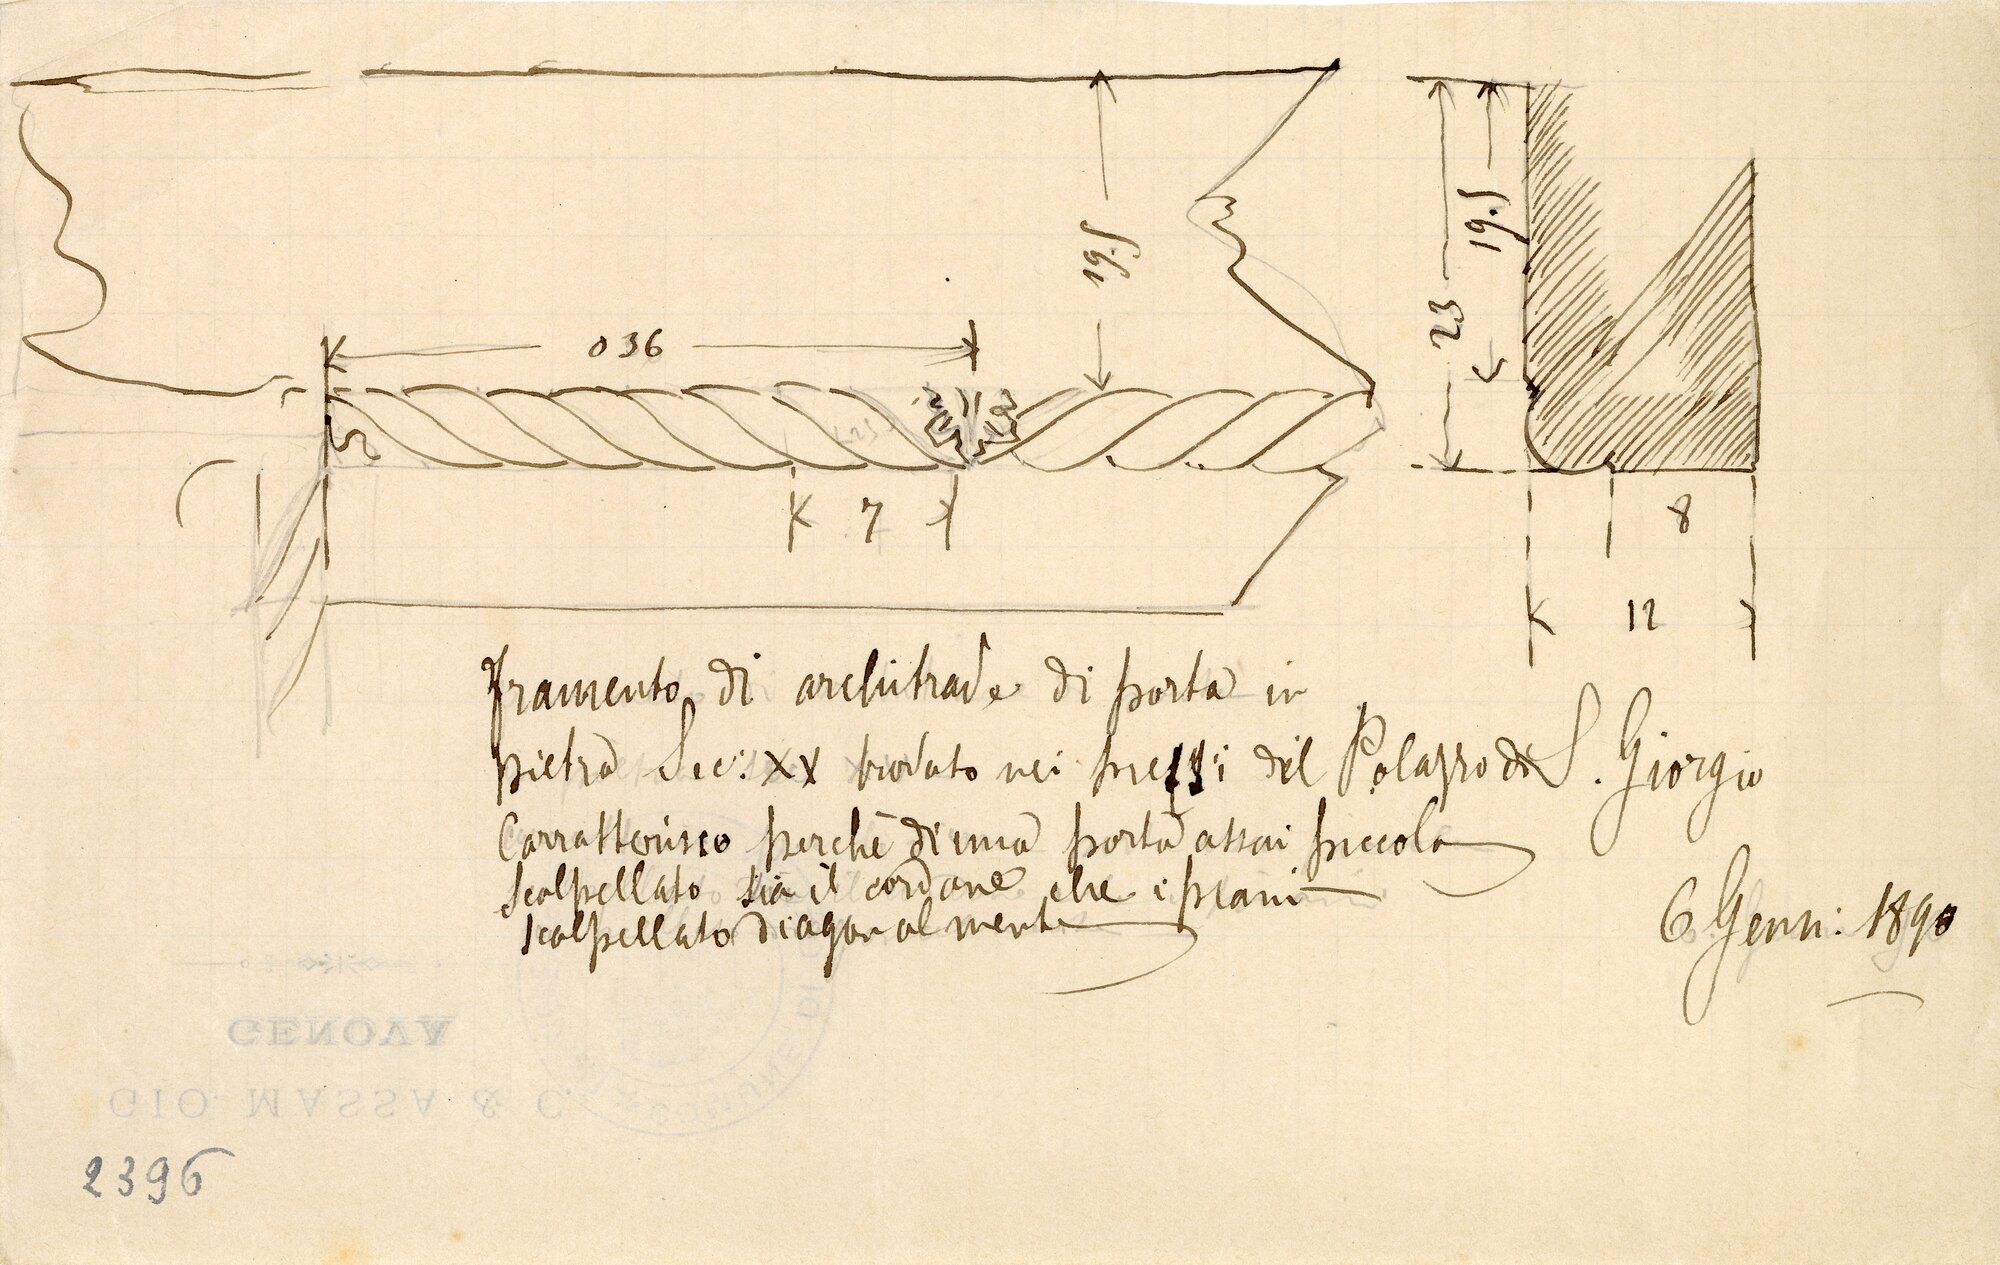 036
19.5
19.5
23
7
8
12
Framento di architrave di porta in
pietra Sec: XV trovato nei pressi del Palazzo di S. Giorgio
Carratterisco perchè di una porta assai piccola
scalpellato sia il cordone che i piani
scalpellato diagonalmente
6 Genn: 1890
GENOVA
GIO. MASSA & C.
COMUNE DI
2396